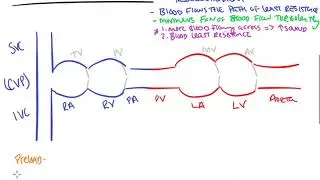 - BLOOD FLOWS THE PATH OF LEAST RESISTANCE
- MURMURS FXN OF BLOOD FLOW TURBULENTLY
* 1. MORE BLOOD FLOWING ACROSS => ↑SOUND
2. BLOOD LEAST RESISTENCE
SVC
TV
PV
MV
AV
(CVP)
IVC
RA
RV
PA
PV
LA
LV
AORTA
Preload-
-